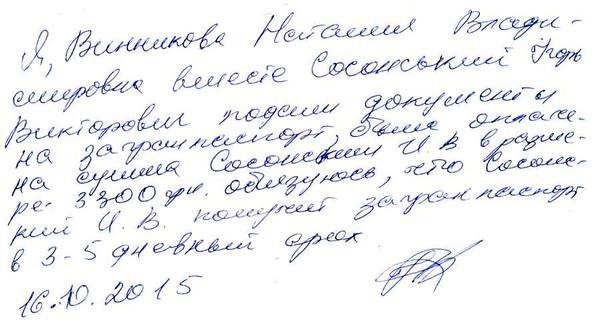 Я, Винникова Наталия Влади-
мировна вместе Сосонський Ігорь
Викторович подали документы
на загранпаспорт, была оплаче-
на сумма Сосонський И. В в разме-
ре 3300 грн. обязуюсь, что Сосонс-
кий И. В. получит загранпаспорт
в 3-5 дневный срок
16.10.2015